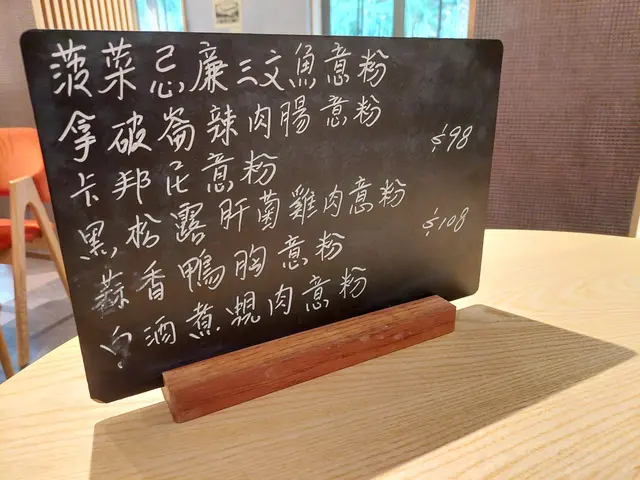 菠菜忌廉三文魚意粉
拿破崙辣肉腸意粉
$98
卡邦尼意粉
黑松露肝菌雞肉意粉
$108
蒜香鴨胸意粉
白酒煮蜆肉意粉